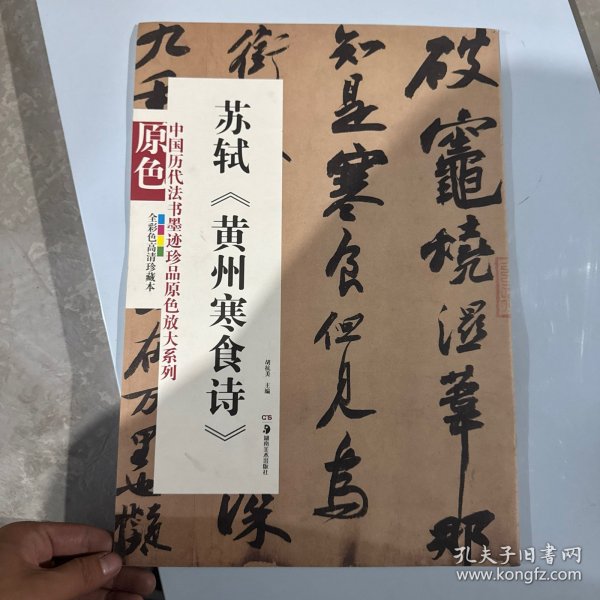 破竈燒濕葦那
知是寒食但見烏
銜
深
九重
在万里也擬
苏轼《黄州寒食诗》
胡紫美 主编
湖南美术出版社
中国历代法书墨迹珍品原色放大系列
原色
全彩色高清珍藏本
孔夫子旧书网
www.kongfz.com